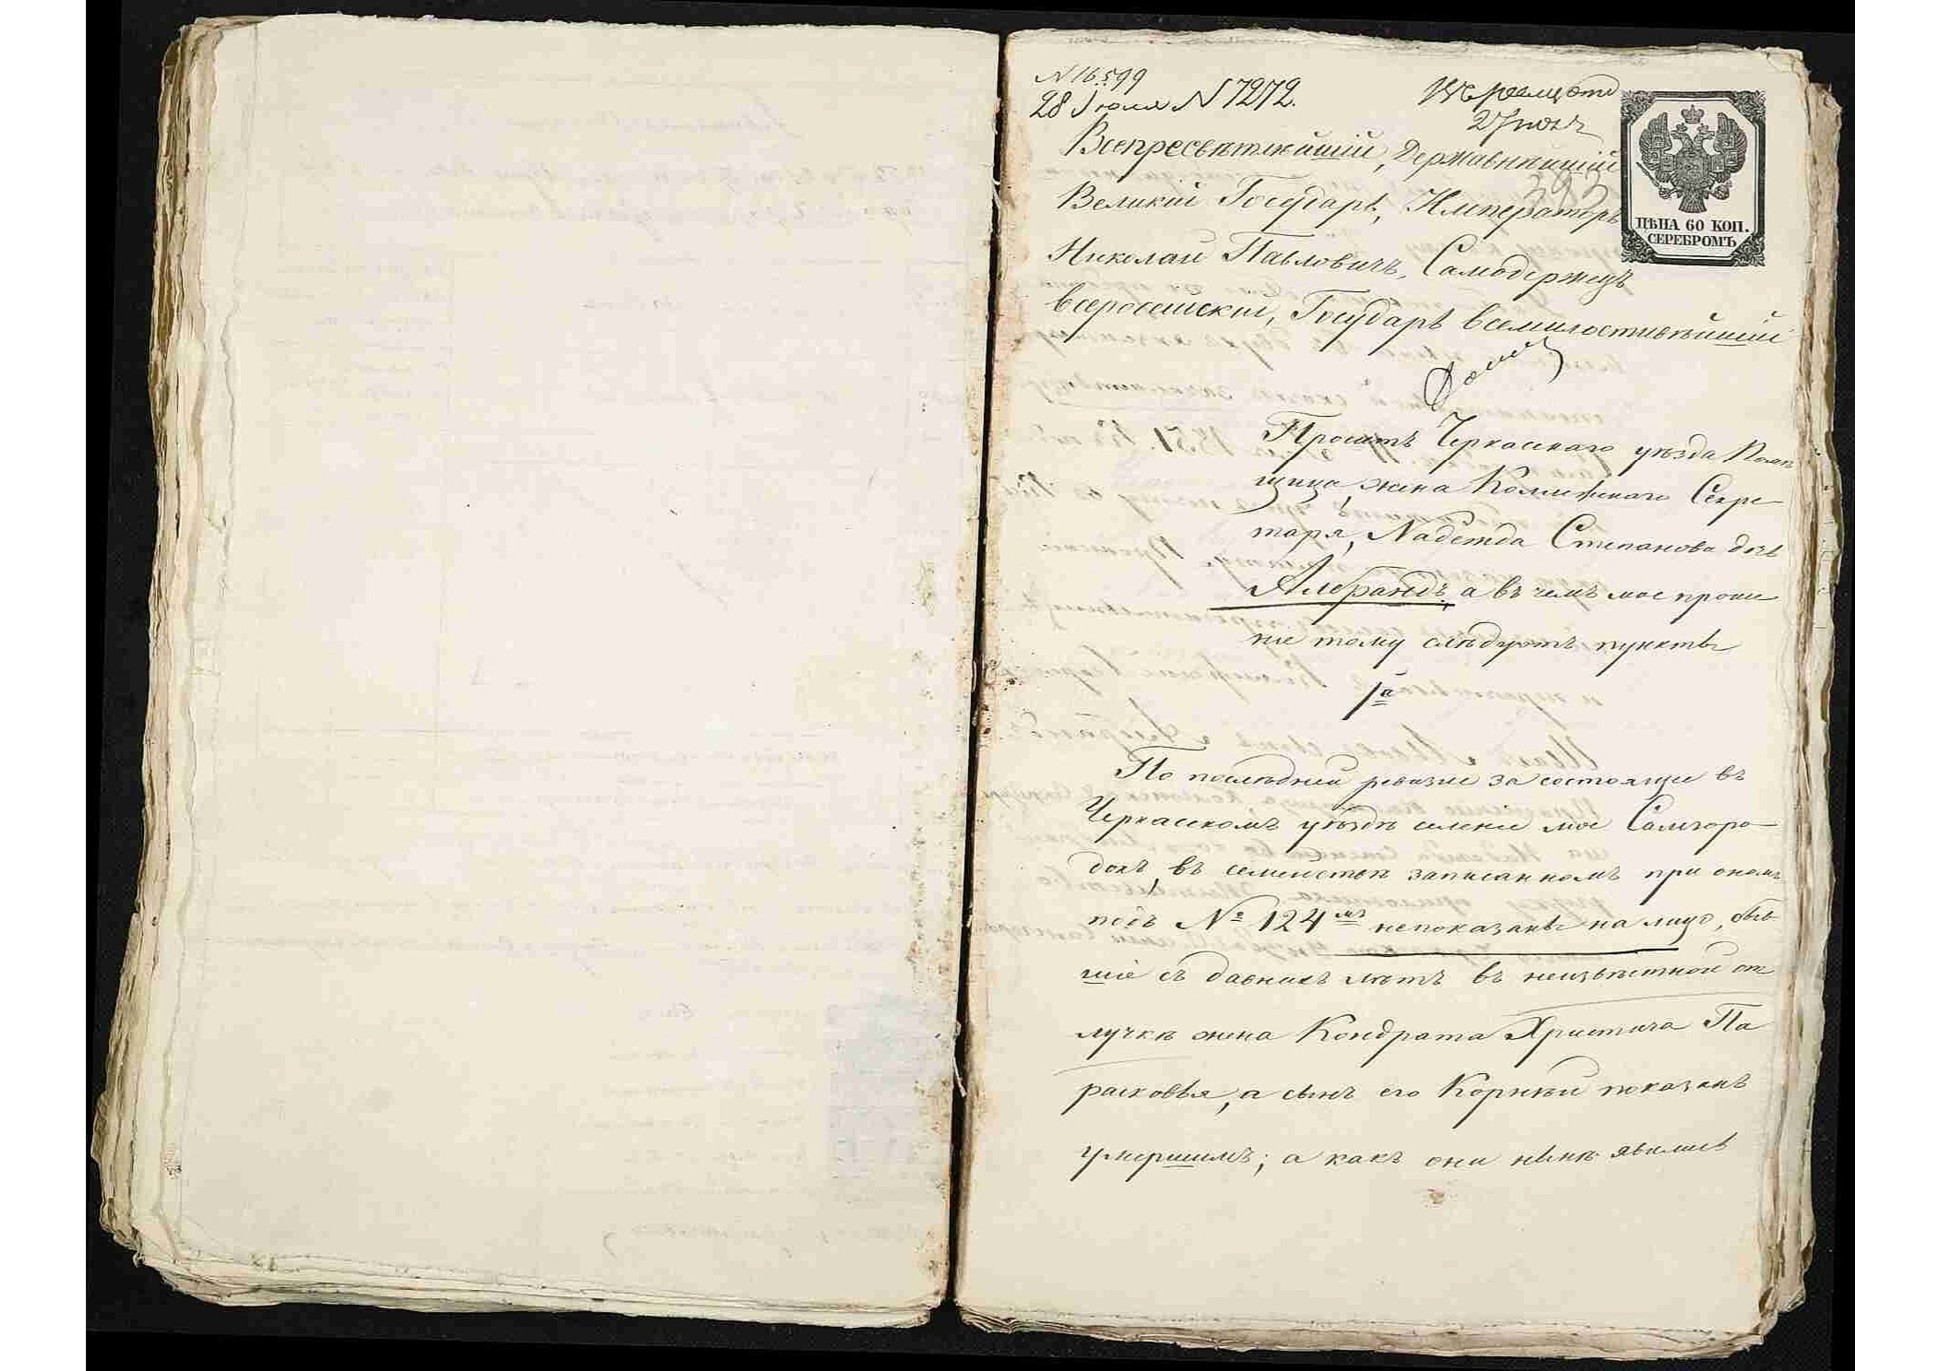 N 16599
28 Іюля N 7272.
27 июля
Всепресвѣтлѣйшій, Державнѣйшій
Великій Государь, Императоръ
383
Николай Павловичъ, Самодержецъ
всеросеійскій, Государь всемилостивѣйшій
ЦѢНА 60 КОП.
СЕРЕБРОМЪ
Проситъ Черкаскаго уѣзда Помѣ
щица, жена Коллежскаго Секре-
таря, Надежда Степанова дочь
Алебрандъ, а въ чемъ мое проше
ніе тому слѣдуютъ пункты
1й
По послѣдней ревизіи за состоящее въ
Черкаскомъ уѣздѣ селеніе мое Самгоро-
докъ, въ семействѣ записанномъ при ономъ
подъ № 124мъ непоказаны на лицо, быв-
шіе съ давнихъ лѣтъ въ неизвѣстной от
лучкѣ жена Кондрата Христича Па
расковья, а сынъ его Корнѣй показанъ
умершимъ; а какъ они нынѣ явились